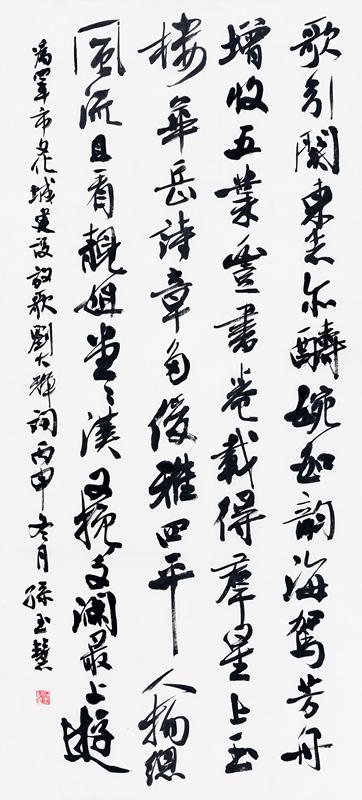 歌引關東志亦醻婉如韵海駕芳舟
增收五業豐書卷載得羣星上玉
樓華岳詩章多俊雅四平人物總
風流且看靚姐堂〻漢又挽文瀾最上遊
為四平市文化城建設放歌劉大輝詞丙申冬月孫玉慧